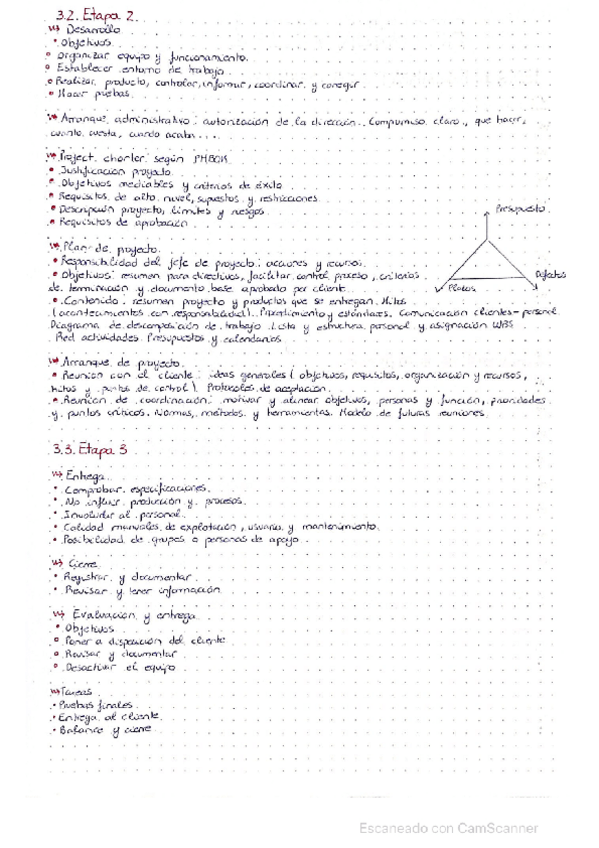 3.2. Etapa 2
Desarrollo
• Objetivos
° Organizar equipo y funcionamiento.
° Establecer entorno de trabajo
° Realizar producto, controlar, informar, coordinar y corregir
• Hacer pruebas.
Arranque administrativo: autorización de la dirección. Compromiso claro, que hacer,
cuanto cuesta, cuando acaba....
Project charter: según PMBOK
• Justificación proyecto
• Objetivos medibles y criterios de éxito
• Requisitos de alto nivel, supuestos y restricciones
• Descripción proyecto, límites y riesgos
• Requisitos de aprobación
Presupuesto
Plazos
Defectos
Plan de proyecto.
• Responsabilidad del jefe de proyecto: acciones y recursos.
• Objetivos: resumen para directivos, facilitar control, proceso, criterios
de terminación y documento base aprobado por cliente.
• Contenido: resumen proyecto y productos que se entregan. Hitos
(acontecimientos con responsabilidad). Procedimiento y estándares. Comunicación clientes-personal
Diagrama de descomposición de trabajo. Lista y estructura personal y asignación WBS
Red actividades. Presupuestos y calendarios
Arranque de proyecto.
• Reunión con el cliente: ideas generales (objetivos, requisitos, organización y recursos,
hitos y puntos de control). Protocolos de aceptación.
• Reunión de coordinación: motivar y alinear objetivos, personas y función, prioridades
y puntos críticos. Normas, métodos y herramientas. Modelo de futuras reuniones.
3.3. Etapa 3
Entrega
• Comprobar especificaciones.
• No influir producción y procesos.
• Involucrar al personal
• Calidad manuales de explotación, usuario y mantenimiento.
• Posibilidad de grupos o personas de apoyo
Cierre
• Registrar y documentar
• Revisar y tener información
Evaluación y entrega
• Objetivos
° Poner a disposición del cliente
° Revisar y documentar
° Desactivar el equipo
Tareas
• Pruebas finales
• Entrega al cliente
• Balance y cierre
Escaneado con CamScanner